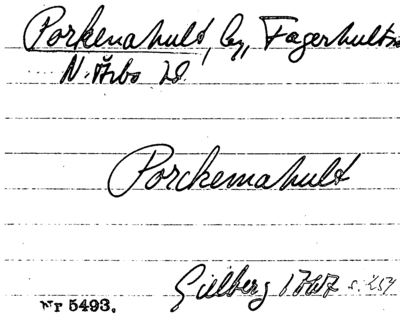 Porkenahult, by, Fagerhults
N. Åsbo
Porckemahult
Gillberg s. 254
Nr 5493.